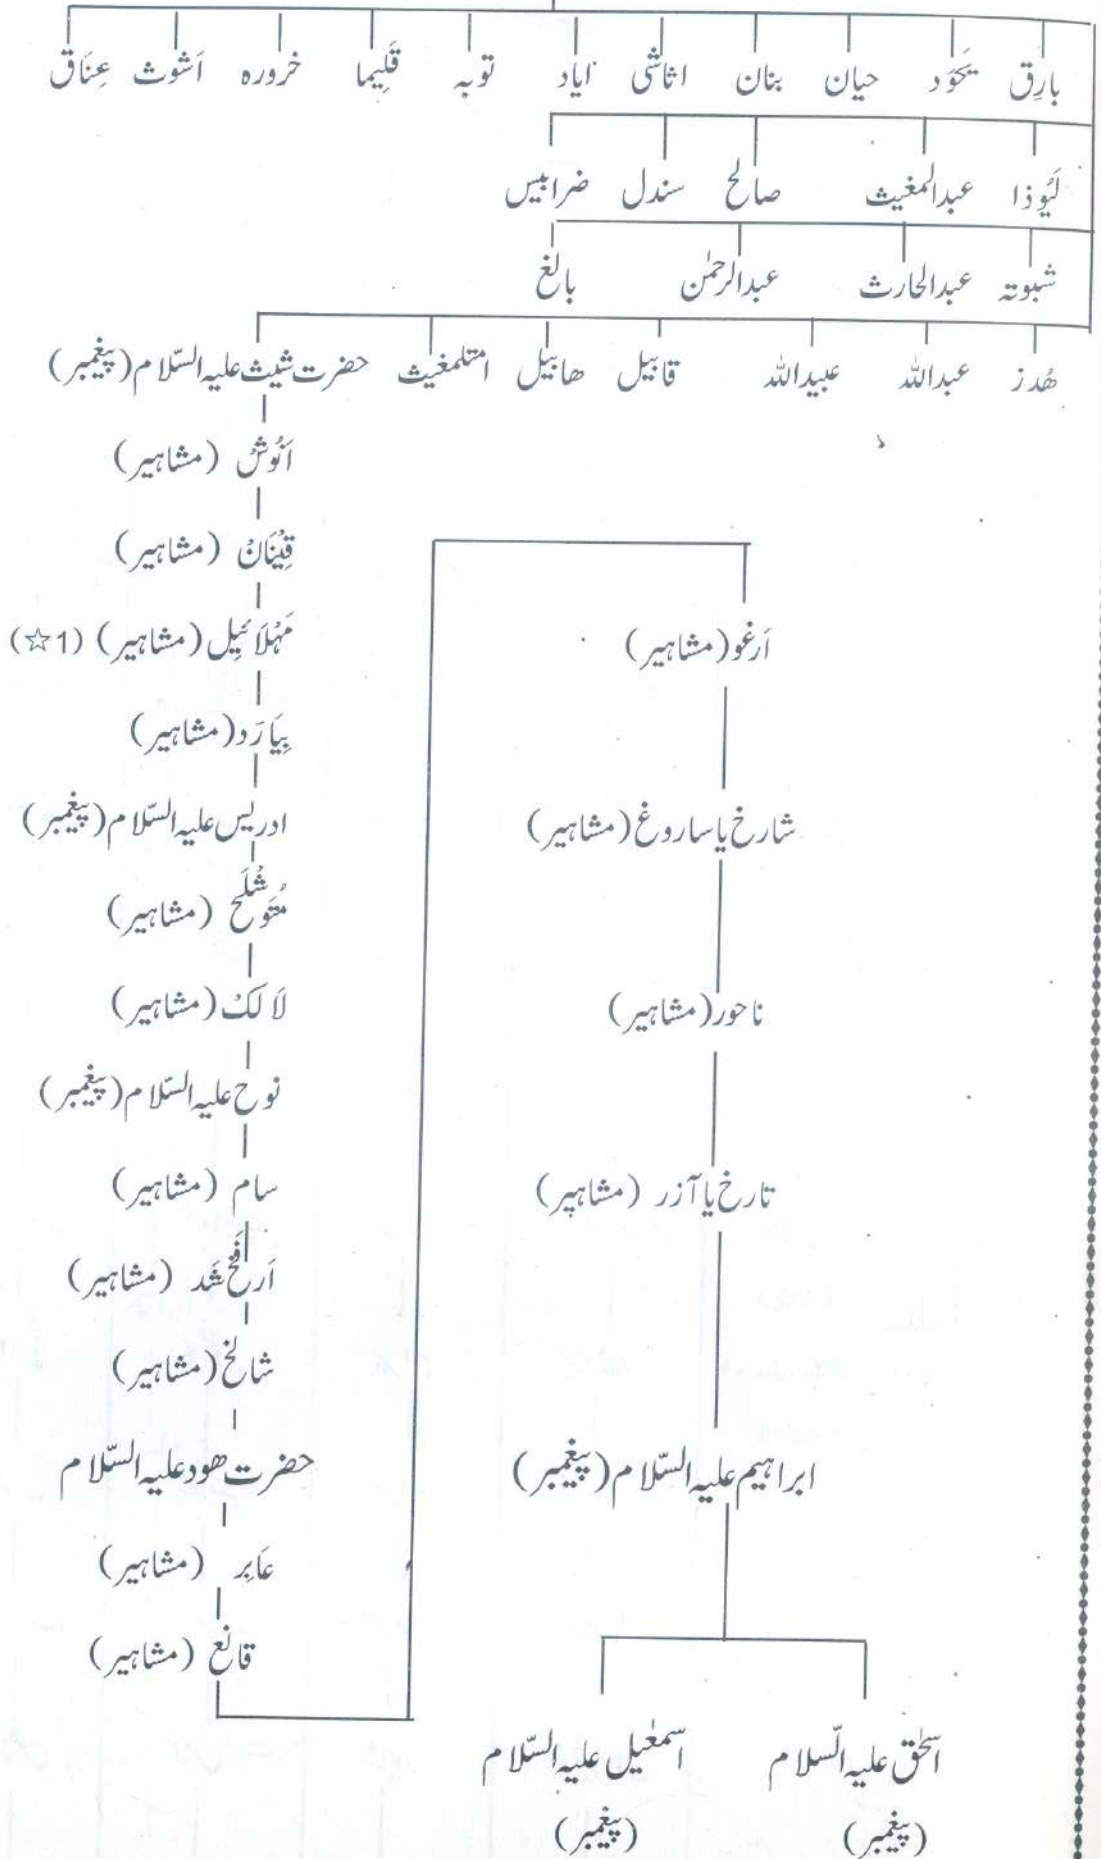 بارِق یَحَوٗد حیان بنان اثاثی ایاد توبہ قَلِیما خرورہ اَشوث عِنَاق
لَیُوذا عبدالمغیث صالح سندل ضرابیس
شبوتہ عبدالحارث عبدالرحمٰن بالغ
ھُدز عبداللہ عبیداللہ قابیل ھابیل امتلمغیث حضرت شیث علیہ السّلام (پیغمبر)
اَنُوش (مشاہیر)
قِیْنَانْ (مشاہیر)
مَہْلَائیِل (مشاہیر) (☆1)
یِیَارَد (مشاہیر)
ادریس علیہ السّلام (پیغمبر)
مُتَوَشْلَح (مشاہیر)
لَالَکْ (مشاہیر)
نوح علیہ السّلام (پیغمبر)
سام (مشاہیر)
اَرفَخْشَد (مشاہیر)
شالخ (مشاہیر)
حضرت ھود علیہ السّلام
عَابِر (مشاہیر)
قانع (مشاہیر)
اَرغو (مشاہیر)
شارخ یا ساروغ (مشاہیر)
ناحور (مشاہیر)
تارخ یا آزر (مشاہیر)
ابراہیم علیہ السّلام (پیغمبر)
اسحٰق علیہ السّلام اسمٰعیل علیہ السّلام
(پیغمبر) (پیغمبر)